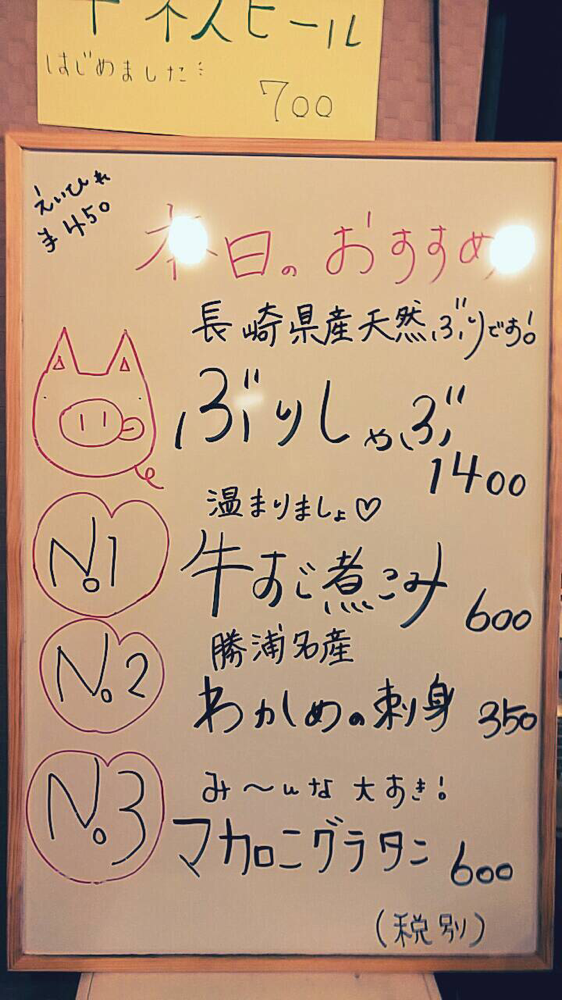 ギネスビール
はじめました…
700
えいひれ
¥450
本日のおすすめ
長崎県産天然ぶりです!
ぶりしゃぶ
1400
温まりましょ♡
No.1
牛すじ煮こみ
600
勝浦名産
No.2
わかめの刺身 350
み〜んな大すき!
No.3
マカロニグラタン
600
(税別)